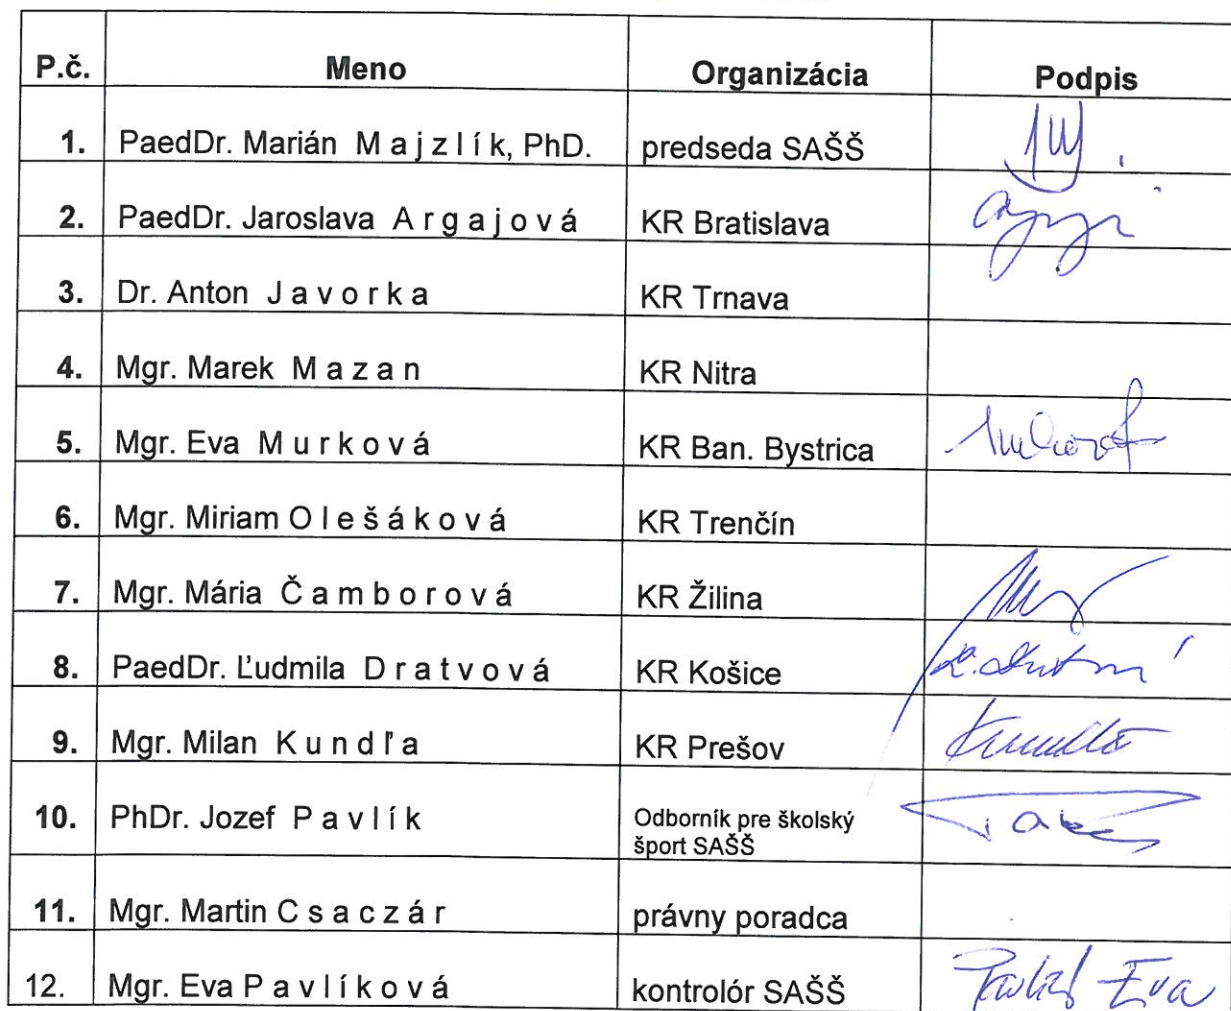 P.č. Meno Organizácia Podpis
1. PaedDr. Marián M a j z l í k, PhD. predseda SAŠŠ
2. PaedDr. Jaroslava A r g a j o v á KR Bratislava
3. Dr. Anton J a v o r k a KR Trnava
4. Mgr. Marek M a z a n KR Nitra
5. Mgr. Eva M u r k o v á KR Ban. Bystrica
6. Mgr. Miriam O l e š á k o v á KR Trenčín
7. Mgr. Mária Č a m b o r o v á KR Žilina
8. PaedDr. Ľudmila D r a t v o v á KR Košice
9. Mgr. Milan K u n d ľ a KR Prešov
10. PhDr. Jozef P a v l í k Odborník pre školský
šport SAŠŠ
11. Mgr. Martin C s a c z á r právny poradca
12. Mgr. Eva P a v l í k o v á kontrolór SAŠŠ Eva